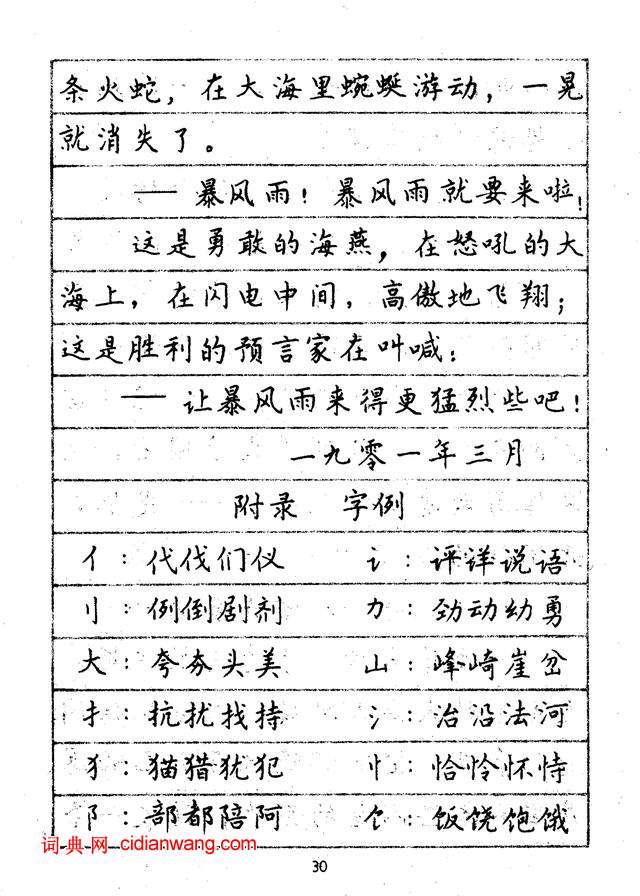 条火蛇，在大海里蜿蜒游动，一晃
就消失了。
——暴风雨！暴风雨就要来啦！
这是勇敢的海燕，在怒吼的大
海上，在闪电中间，高傲地飞翔；
这是胜利的预言家在叫喊：
——让暴风雨来得更猛烈些吧！
一九零一年三月
附录 字例
亻：代伐们仪 讠：评详说语
刂：例倒剧剂 力：劲动幼勇
大：夸夯头美 山：峰崎崖岔
扌：抗扰找持 氵：治沿法河
犭：猫猎犹犯 忄：恰怜怀恃
阝：部都陪阿 饣：饭饶饱饿
词典网 cidianwang.com
30